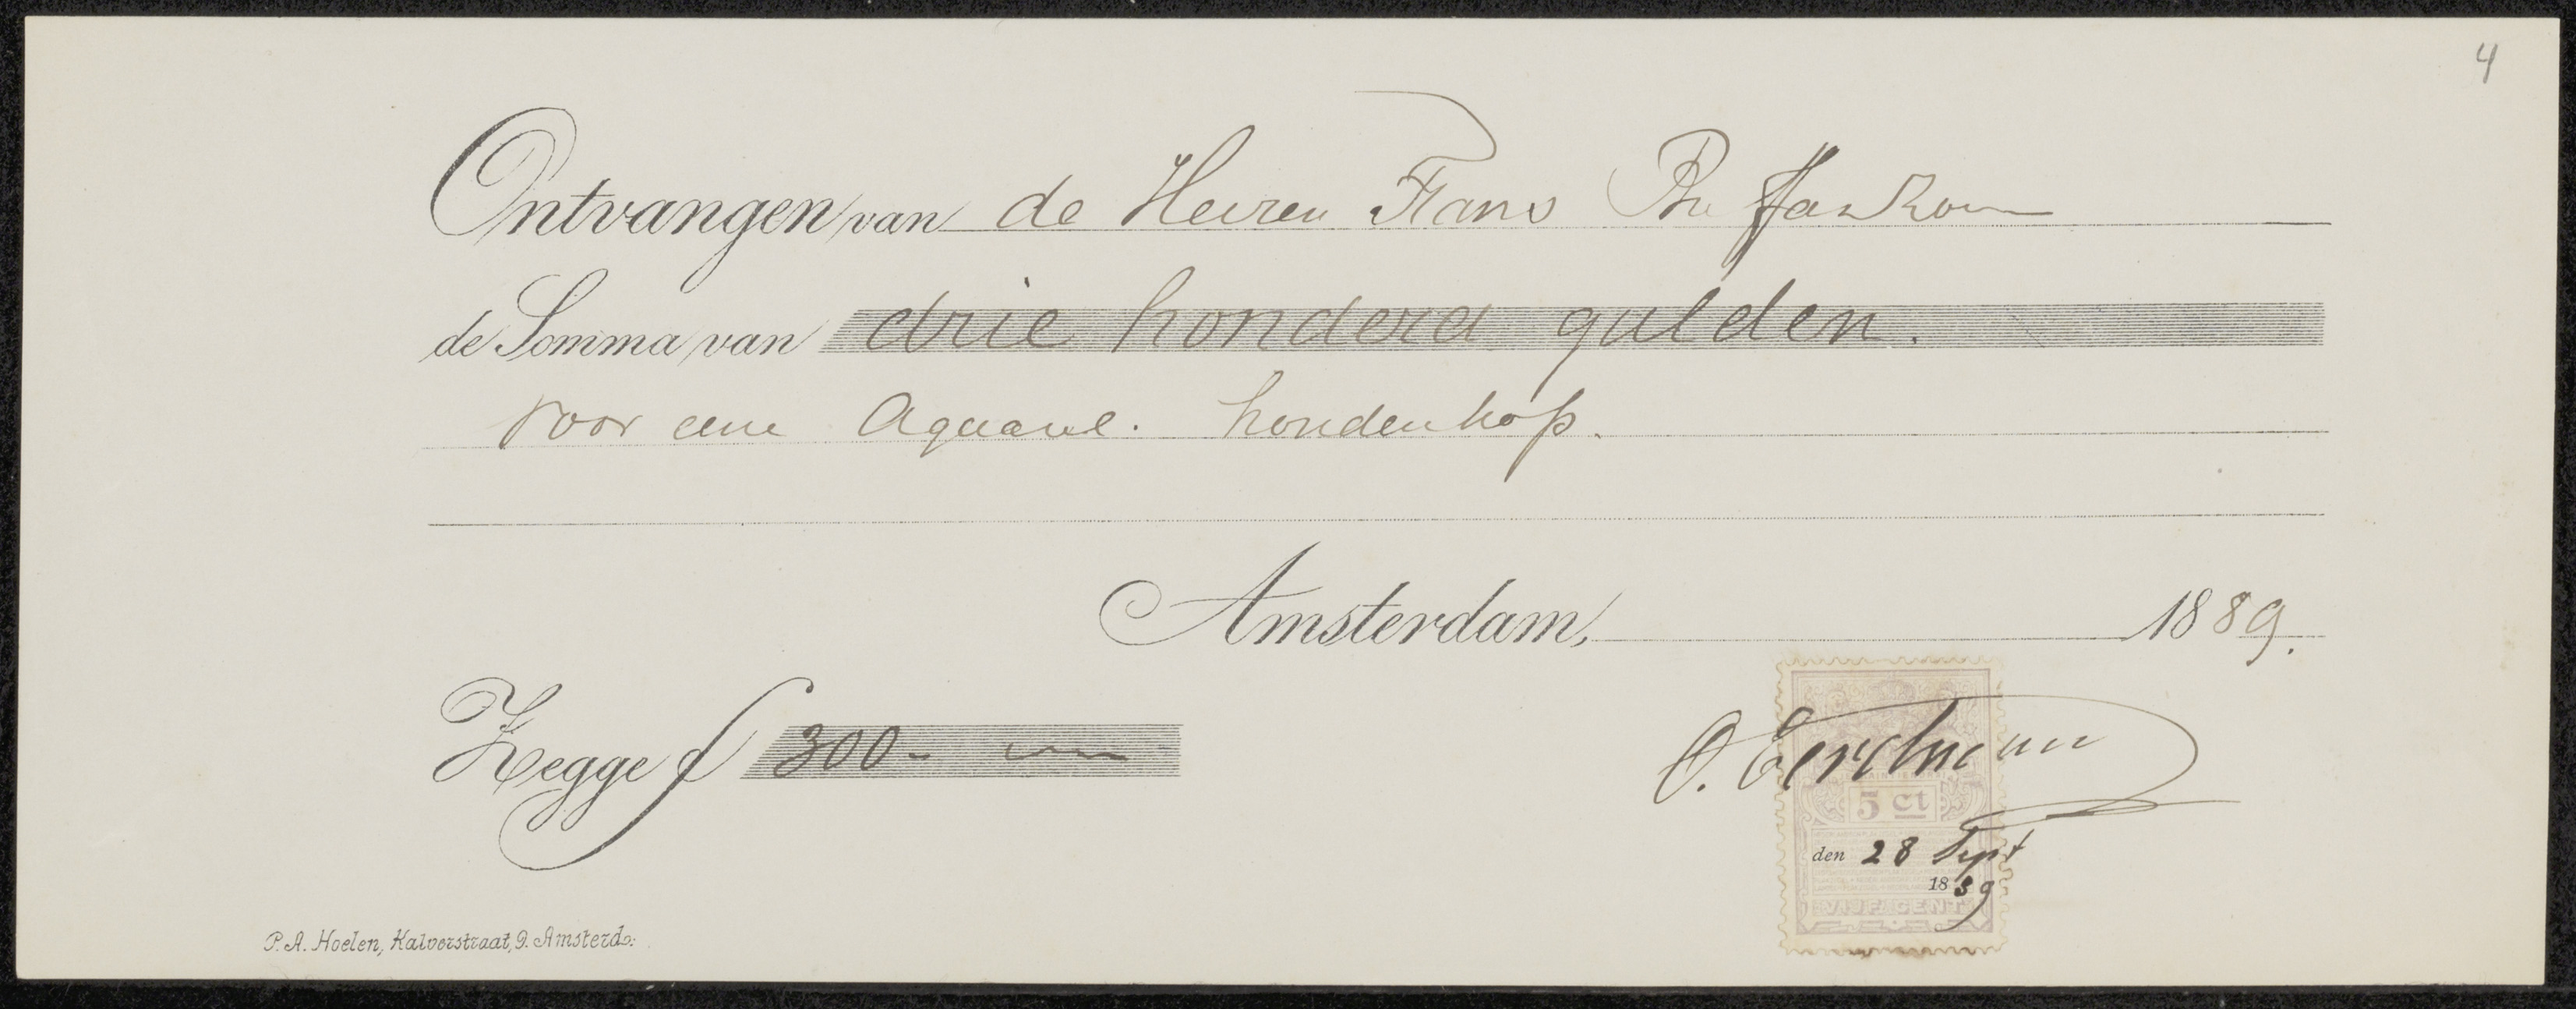 4
Ontvangen van de Heeren Frans
de Somma van drie honderd gulden.
voor eene Aquarel. hondenkop.
Amsterdam, 1889.
Zegge f 300-
O. Eerelman
5 ct
den 28 Sept
1889
VIJF CENT
P.A. Hoelen, Kalverstraat, 9. Amsterd: